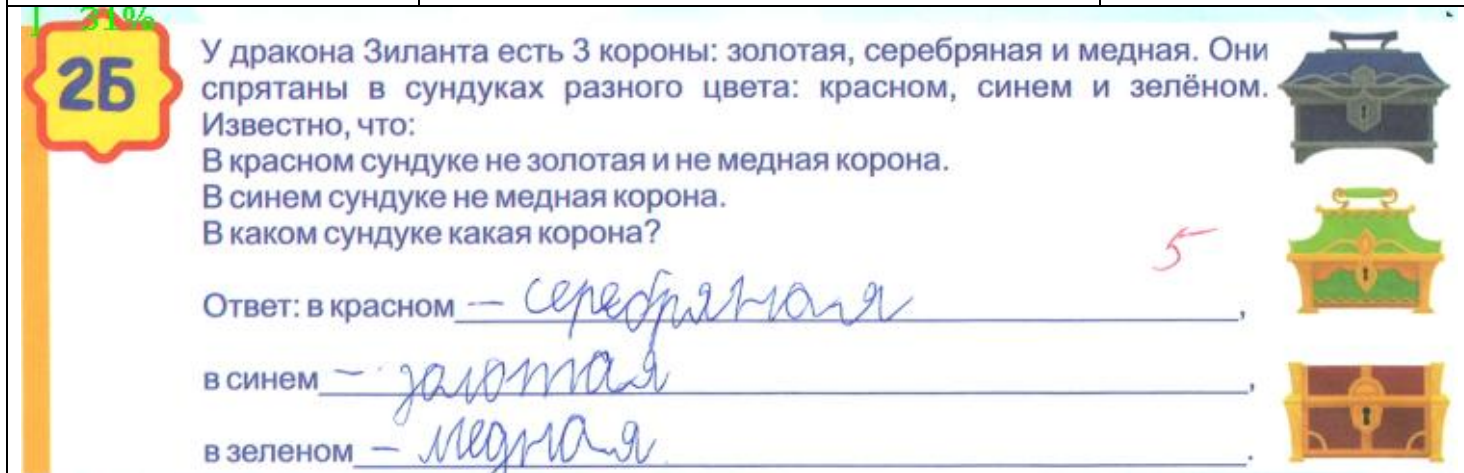 31%
2Б
У дракона Зиланта есть 3 короны: золотая, серебряная и медная. Они
спрятаны в сундуках разного цвета: красном, синем и зелёном.
Известно, что:
В красном сундуке не золотая и не медная корона.
В синем сундуке не медная корона.
В каком сундуке какая корона?
5
Ответ: в красном — серебряная,
в синем — золотая,
в зеленом — медная.